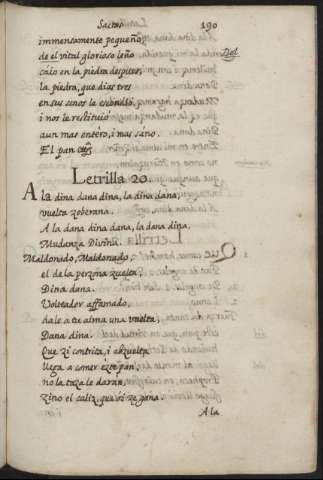 Sacras 190
immensamente pequeño,
de el vital glorioso leño Del
caio en la piedra despues,
la piedra, que dias tres
en sus senos le escondio,
i nos le restituiò
aun mas entero, i muy sano.
El pan que
Letrilla 20.
A la dina dana dina, la dina dana,
vuelta zoberana.
A la dana dina dana, la dana dina,
Mudanza Divina.
Maldonado, Maldonado,
el de la perzona zuelta,
Dina dana.
Volteador affamado,
dale a tu alma una vuelta,
Dana dina.
Que zi contrita, i abzuelta
llega a comer ezte pan,
no la taza le daran,
zino el caliz, que oi ze gana.
A la